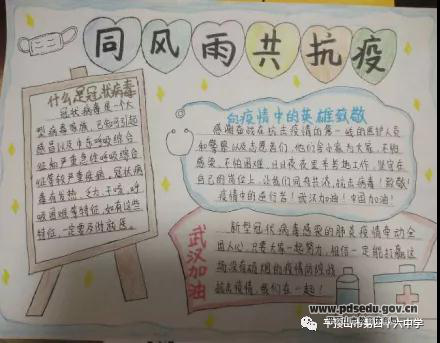 同风雨共抗疫
什么是冠状病毒
冠状病毒是一个大
型病毒家族，已知可引起
感冒以及中东呼吸综合
征和严重急性呼吸综合
征等较严重疾病，冠状病
毒有发热，乏力，干咳，呼
吸困难等特征，如有这些
特征，一定要及时就医。
向疫情中的英雄致敬
感谢奋战在抗击疫情的第一线的医护人员
和警察，以及志愿者们，他们舍小家为大家，不怕
感染，不怕困难，日日夜夜坚守
在自己的岗位上，让我们同舟共济，抗击病毒！致敬！
疫情中的逆行者！武汉加油！中国加油！
武汉加油
新型冠状病毒感染的肺炎疫情牵动全
国人心，只要大家一起努力，相信一定能打赢这
场没有硝烟的疫情防控战
抗击疫情，我们在一起！
www.pdsedu.gov.cn
平顶山市教育体育局
平顶山市第四十六中学